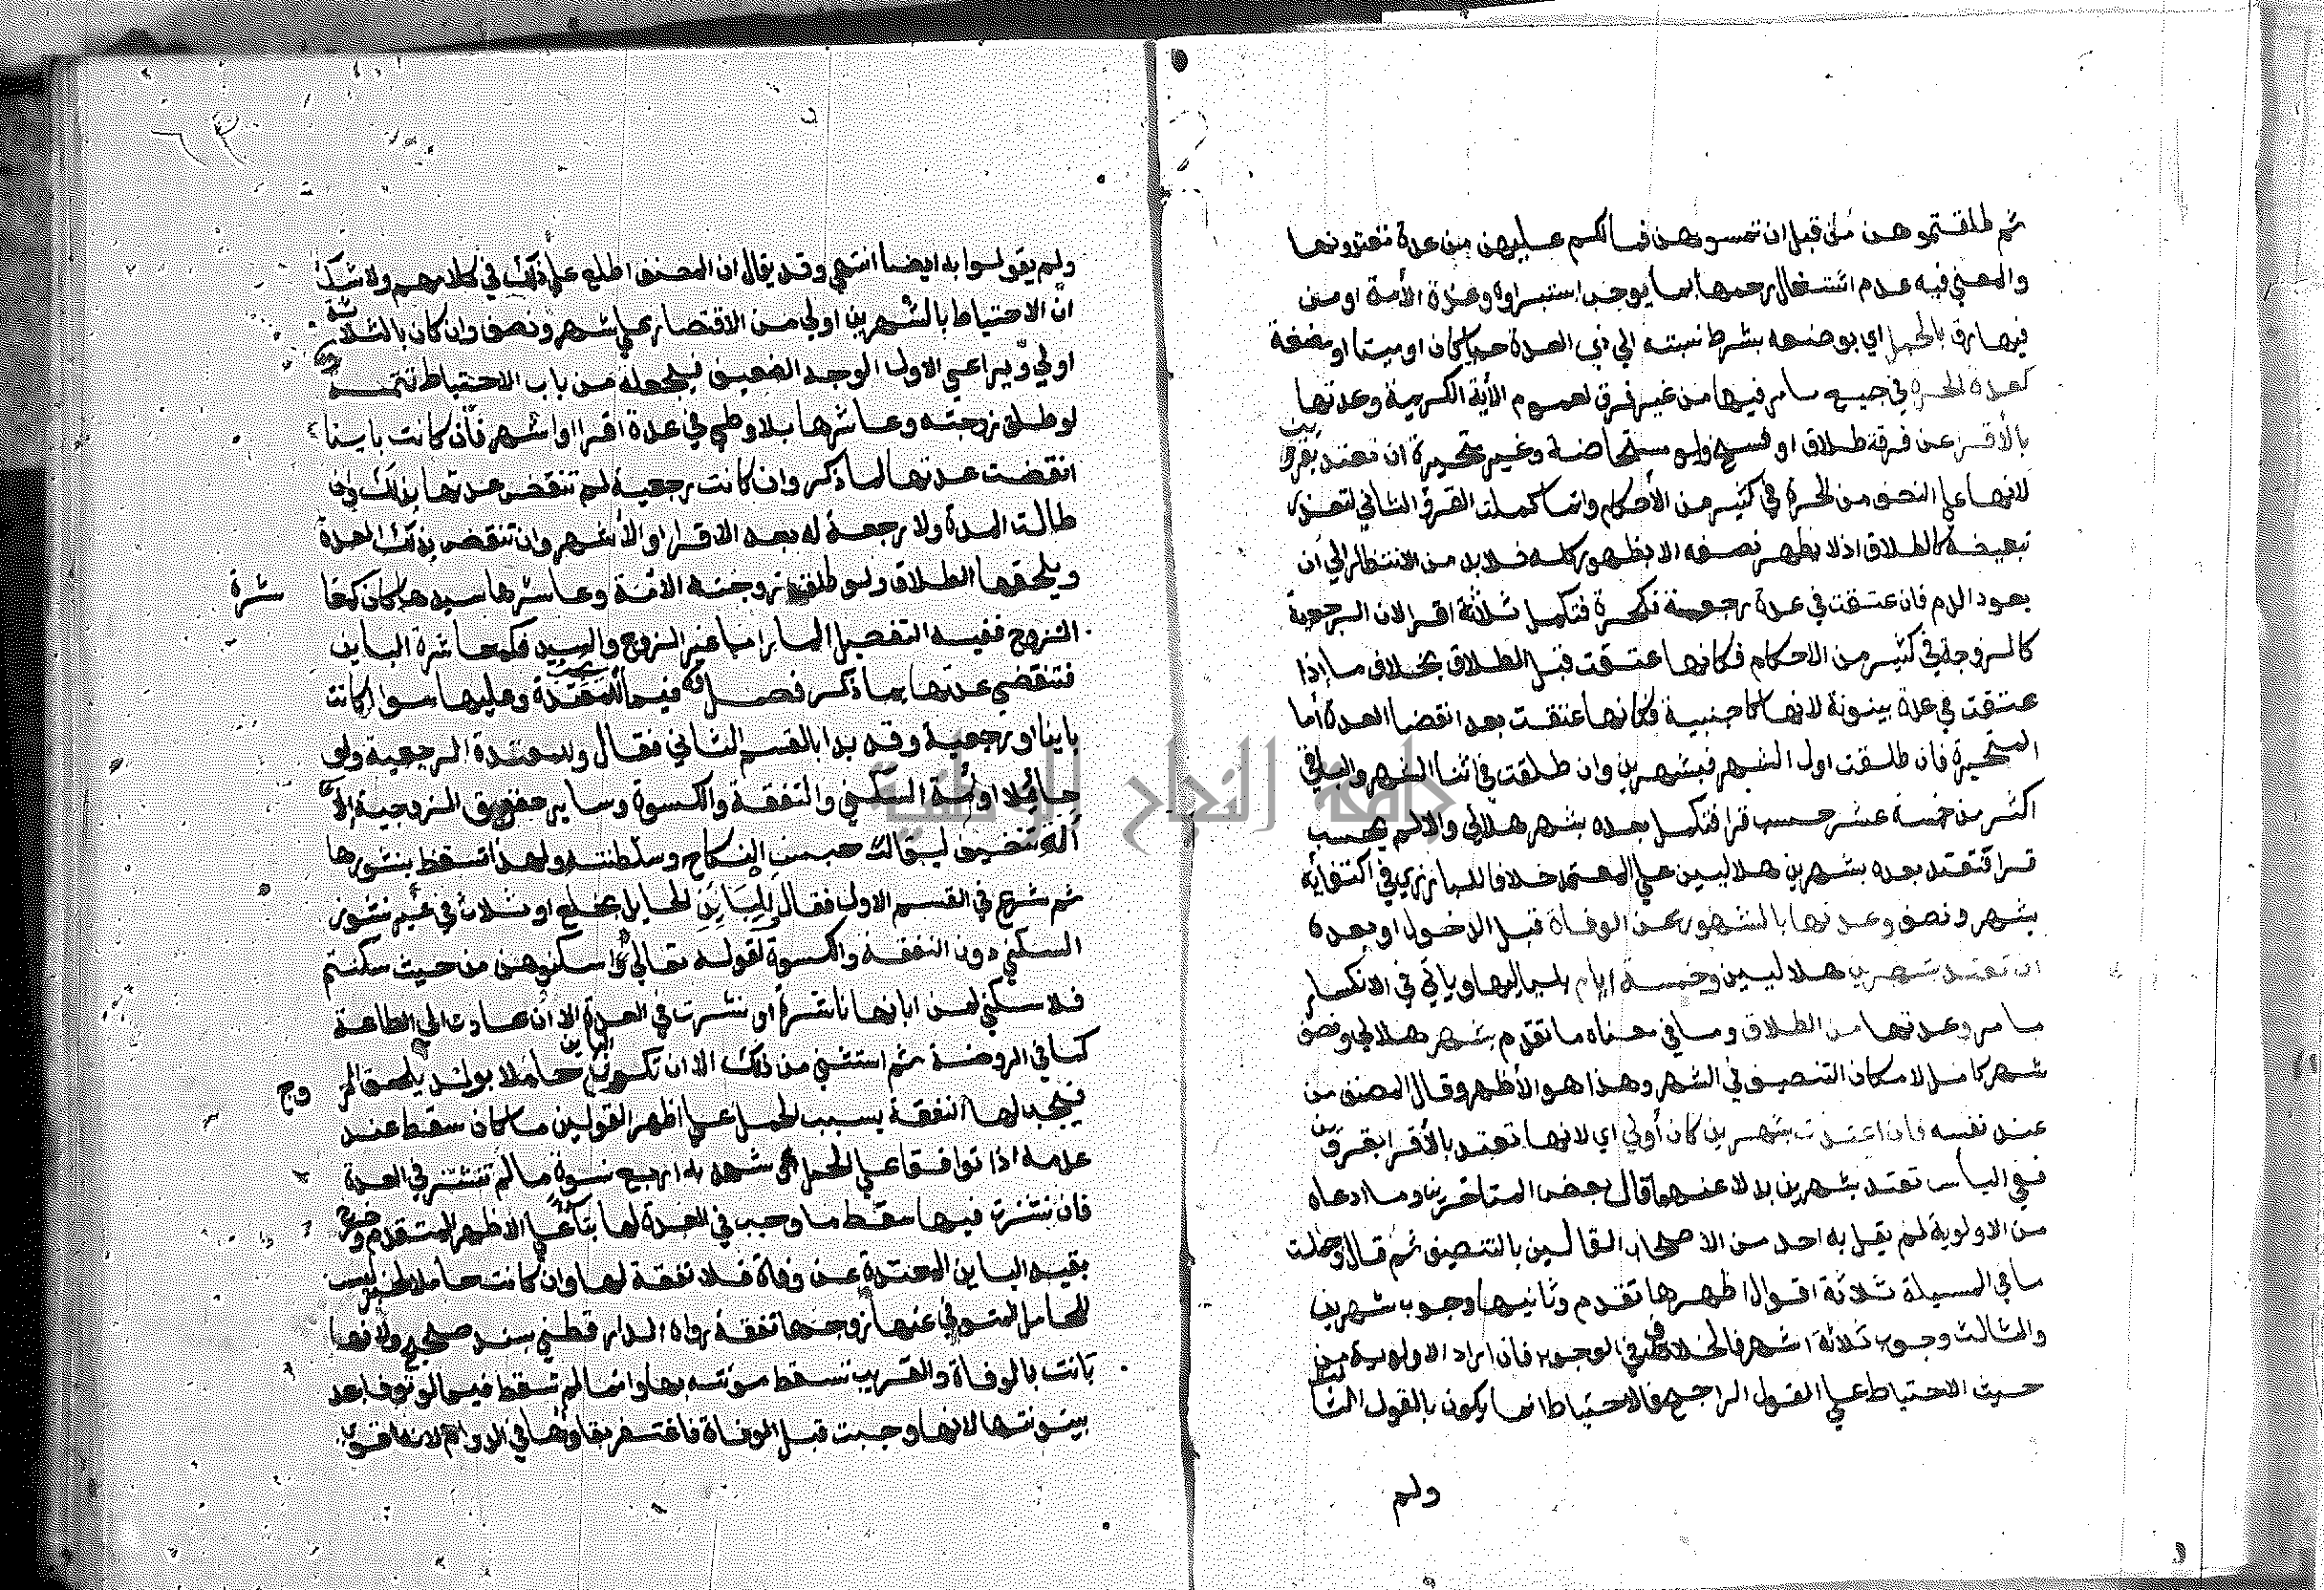 ثم طلقتموهن من قبل ان تمسوهن فما لكم عليهن من عدة تعتدونها
والمعني فيه عدم اشتغال رحمها بما يوجب استبراوه وعدة الأمة او من
فيها رق بالحمل اي بوضعه بشرط نسبته الي ذي العدة حيا كان او ميتا او مضغة
كعدة الحرة في جميع ما مر فيها من غير فرق لعموم الأية الكريمة وعدتها
بالأقرا عن فرقة طلاق او فسخ ولو مستحاضة وغير متحيرة ان تعتد بقرين
لانها علي النصف من الحرة في كثير من الأحكام وانما كملت القرؤ الثاني لتعذر
تبعيضه كالطلاق اذ لا يظهر نصفه الا بظهور كله فلا بد من الانتظار الي ان
يعود الدم فان عتقت في عدة رجعية فكحرة فتكمل ثلاثة اقرا لان الرجعية
كالزوجة في كثير من الاحكام فكانها عتقت قبل الطلاق بخلاف ما إذا
عتقت في عدة بينونة لانها كاجنبية فكانها عتقت بعد انقضا العدة أما
المتحيرة فان طلقت اول الشهر فبشهرين وان طلقت في اثنا الشهر والباقي
اكثر من خمسة عشر حسب قرا فتكمل بعده بشهر هلالي والا لم يحسب
قرا فتعتد بعده بشهرين هلاليين علي المعتمد خلافا للبارزي في اكتفايه
بشهر ونصف وعدتها بالشهور عن الوفاة قبل الدخول او بعده
ان تعتد بشهرين هلاليين وخمسة ايام بلياليها وياتي في الانكسار
ما مر وعدتها من الطلاق وما في معناه ما تقدم بشهر هلالي ونصف
شهر كامل لامكان التنصيف في الشهر وهذا هو الأظهر وقال المصنف من
عند نفسه فان اعتدت بشهرين كان أولي اي لانها تعتد بالأقرا بقرين
ففي الياس تعتد بشهرين بدلا عنهما قال بعض المتاخرين وما ادعاه
من الاولوية لم يقل به احد من الاصحاب القالين بالتنصيف ثم قال وجملت
ما في المسيلة ثلاثة اقوال اظهرها تقدم وثانيها وجوب شهرين
والثالث وجوب ثلاثة اشهر فالخلاف في الوجوب فان اراد الاولوية من
حيث الاحتياط علي القول الراجح فالاحتياط انما يكون بالقول الثالث
ولم
ولم يقولوا به ايضا انتهي وقد يقال ان المصنف اطلع علي ذلك في كلامهم ولا شك
ان الاحتياط بالشهرين اولي من الاقتصار علي شهر ونصف وان كان بالثلاثة
اولي ويراعي الاول الوجه الضعيف فيجعله من باب الاحتياط تتمة
لو طلق زوجته وعاشرها بلا وطي في عدة اقرا او اشهر فان كانت باينا
انقضت عدتها لما ذكر وان كانت رجعية لم تنقض عدتها بذلك وان
طالت المدة ولا رجعة له بعد الاقرا او الأشهر وان تنقض بذلك العدة
ويلحقها الطلاق ولو طلق زوجته الامة وعاشرها سيدها كان كمعا
شرة
الزوج ففيه التفصيل المار اما غير الزوج والسيد فكمعاشرة الباين
فتنقضي عدتها بما ذكر فصل فيما للمعتدة وعليها سوا كانت
باينا او رجعية وقد بدا بالقسم الثاني فقال وللمعتدة الرجعية ولو
حايلا او أمة السكني والنفقة والكسوة وساير حقوق الزوجية الا
آلة تنظيف لبقا حبس النكاح وسلطنته ولهذا تسقط بنشوزها
ثم شرع في القسم الاول فقال وللباين الحايل بخلع او ثلاث في غير نشوز
السكني دون النفقة والكسوة لقوله تعالي اسكنوهن من حيث سكنتم
فلا سكني لمن ابانها ناشزة او نشزت في العدة الا ان عادت الي الطاعة
كما في الروضة ثم استثني من ذلك الا ان تكون الباين حاملا بولد يلحق الز
وج
فيجب لها النفقة بسبب الحمل علي اظهر القولين ما كان سقط عند
عدمه اذا توافقا علي الحمل او شهد به اربع نسوة ما لم تنشز في العدة
فان نشزت فيها سقط ما وجب في العدة لها بنا علي الاظهر المتقدم وخرج
بقيد الباين المعتدة عن وفاة فلا نفقة لها وان كانت حاملا لخبر ليس
للحامل المتوفي عنها زوجها نفقة رواه الدارقطني بسند صحيح ولانها
بانت بالوفاة والقريب تسقط مونته بها وانما لم تسقط فيما لو توفي بعد
بينونتها لانها وجبت قبل الوفاة فاغتفر بقاوها في الدوام لانه اقوي